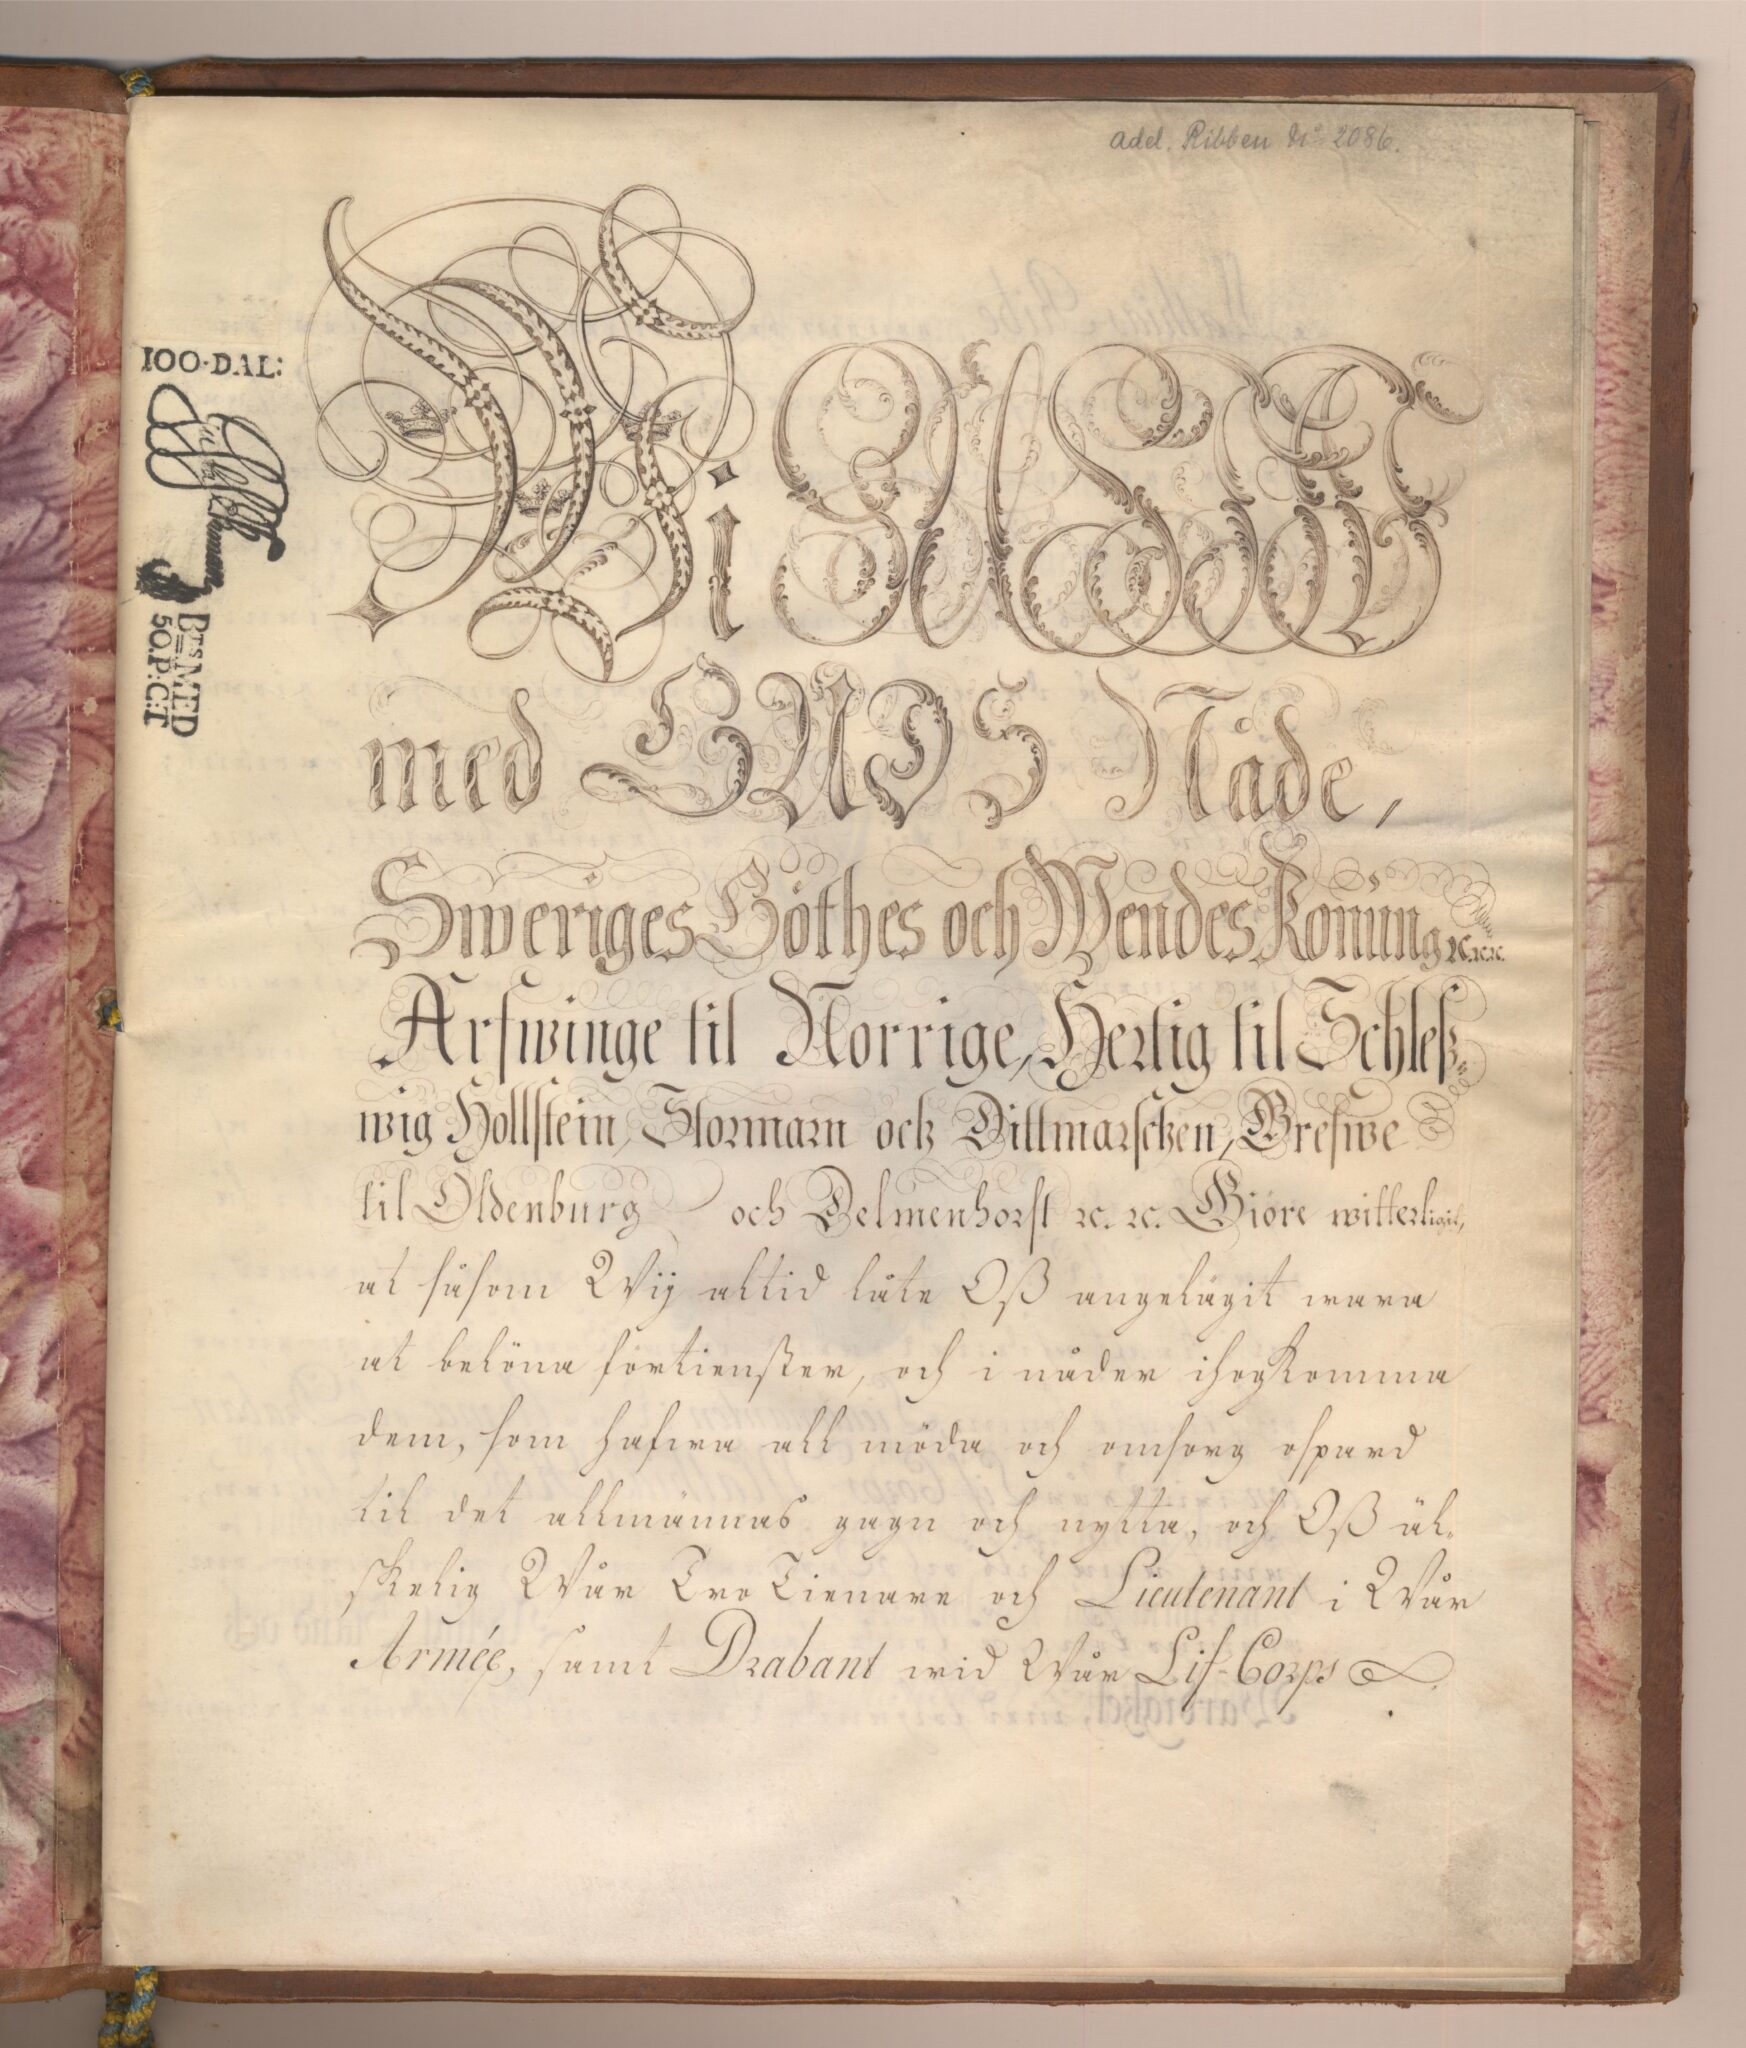 adel. Ribben No 2086.
100·DAL:
BrsMED
50.P:C:T
Wi Gustaf
med GUDS Nåde,
Sweriges Göthes och Wendes Konung ꝛc.ꝛc.ꝛc.
Arfwinge til Norrige, Hertig til Schleß=
wig Hollstein, Stormarn och Dittmarschen, Grefwe
til Oldenburg och Delmenhorst ꝛc. ꝛc. Giöre witterligit,
at såsom Wij altid låte Oß angelägit wara
at belöna förtienster, och i nåder ihogkomma
dem, som hafwa all möda och omsorg ospard
til det allmännas gagn och nytta, och Oß äl=
skelig Wår Tro Tienare och Lieutenant i Wår
Armée, samt Drabant wid Wår Lif-Corps